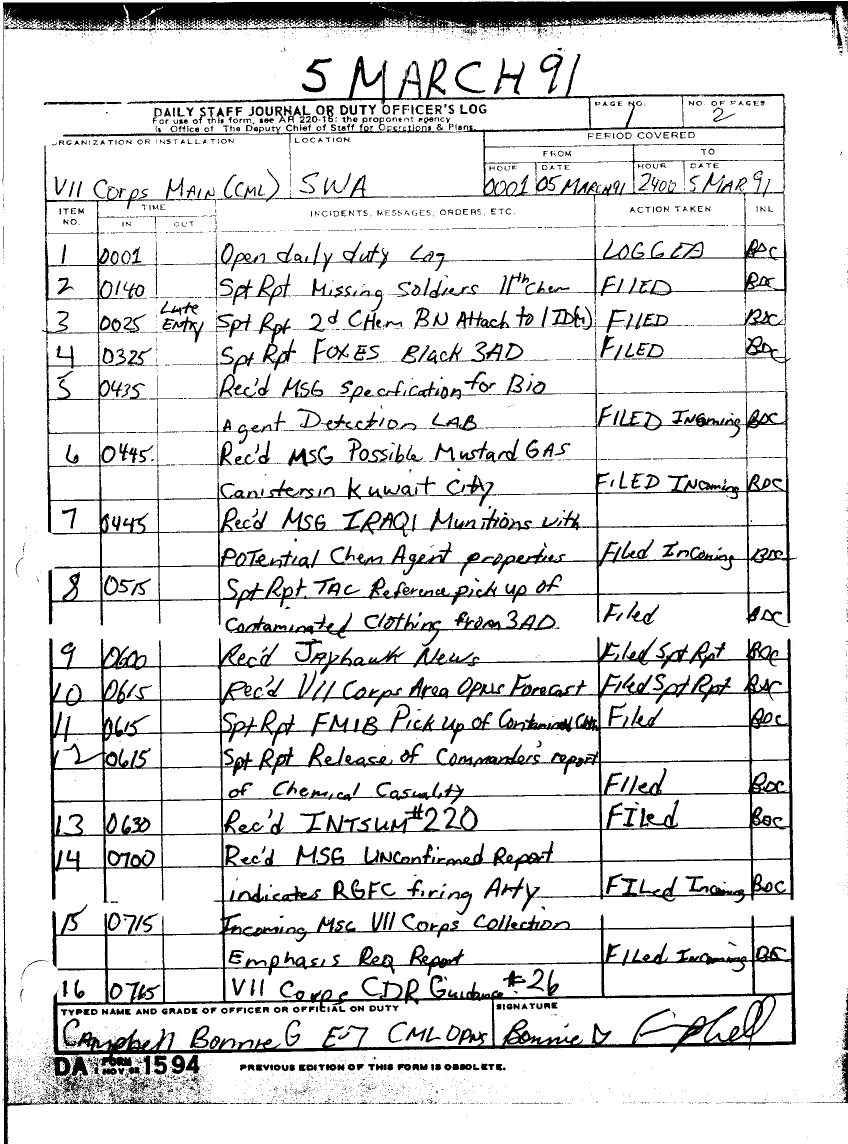 5 MARCH 91
DAILY STAFF JOURNAL OR DUTY OFFICER'S LOG
For use of this form, see AR 220-15: the proponent agency
is Office of The Deputy Chief of Staff for Operations & Plans.
PAGE NO. 1
NO. OF PAGES 2
ORGANIZATION OR INSTALLATION
LOCATION
PERIOD COVERED
FROM TO
HOUR DATE HOUR DATE
VII Corps MAIN (CML) SWA 0001 05 MARCH 91 2400 5 MAR 91
ITEM NO. TIME IN OUT INCIDENTS, MESSAGES, ORDERS, ETC. ACTION TAKEN INL
1 0001 Open daily duty Log LOGGED BDC
2 0140 Spt Rpt Missing Soldiers 11th Chem FILED BDC
3 0025 Late Entry Spt Rpt 2d CHem BN Attach to 1 ID(M) FILED BDC
4 0325 Spt Rpt FOXES Black 3AD FILED BDC
5 0435 Rec'd MSG specification for Bio
Agent Detection LAB FILED INcoming BDC
6 0445 Rec'd MSG Possible Mustard GAS
Canisters in Kuwait City FILED INcoming BDC
7 0445 Rec'd MSG IRAQI Munitions with
POTential Chem Agent properties Filed Incoming BDC
8 0515 Spt Rpt TAC Reference pick up of
Contaminated Clothing from 3AD Filed BDC
9 0600 Rec'd Jayhawk News Filed Spt Rpt BDC
10 0615 Rec'd VII Corps Area Opns Forecast Filed Spt Rpt BDC
11 0615 Spt Rpt FMIB Pick Up of Contaminated Filed BDC
12 0615 Spt Rpt Release of Commander's report
of Chemical Casualty Filed BDC
13 0630 Rec'd INTSUM #220 FILed BDC
14 0700 Rec'd MSG UNconfirmed Report
indicates RGFC firing Arty FILed Incoming BDC
15 0715 Incoming MSG VII Corps Collection
Emphasis Req Report FILed INcoming BDC
16 VII Corps CDR Guidance #26
TYPED NAME AND GRADE OF OFFICER OR OFFICIAL ON DUTY
SIGNATURE
Campbell Bonnie G E-7 CML OPNS Bonnie Campbell
DA FORM 1594
PREVIOUS EDITION OF THIS FORM IS OBSOLETE.